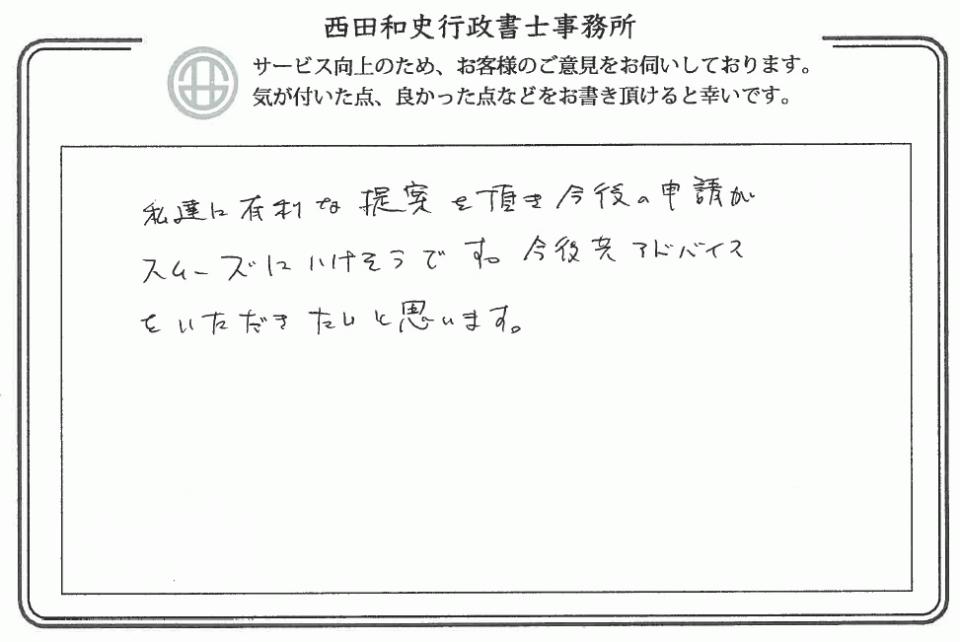 西田和史行政書士事務所
サービス向上のため、お客様のご意見をお伺いしております。
気が付いた点、良かった点などをお書き頂けると幸いです。
私達に有利な提案を頂き今後の申請が
スムーズにいけそうです。今後共アドバイス
をいただきたいと思います。